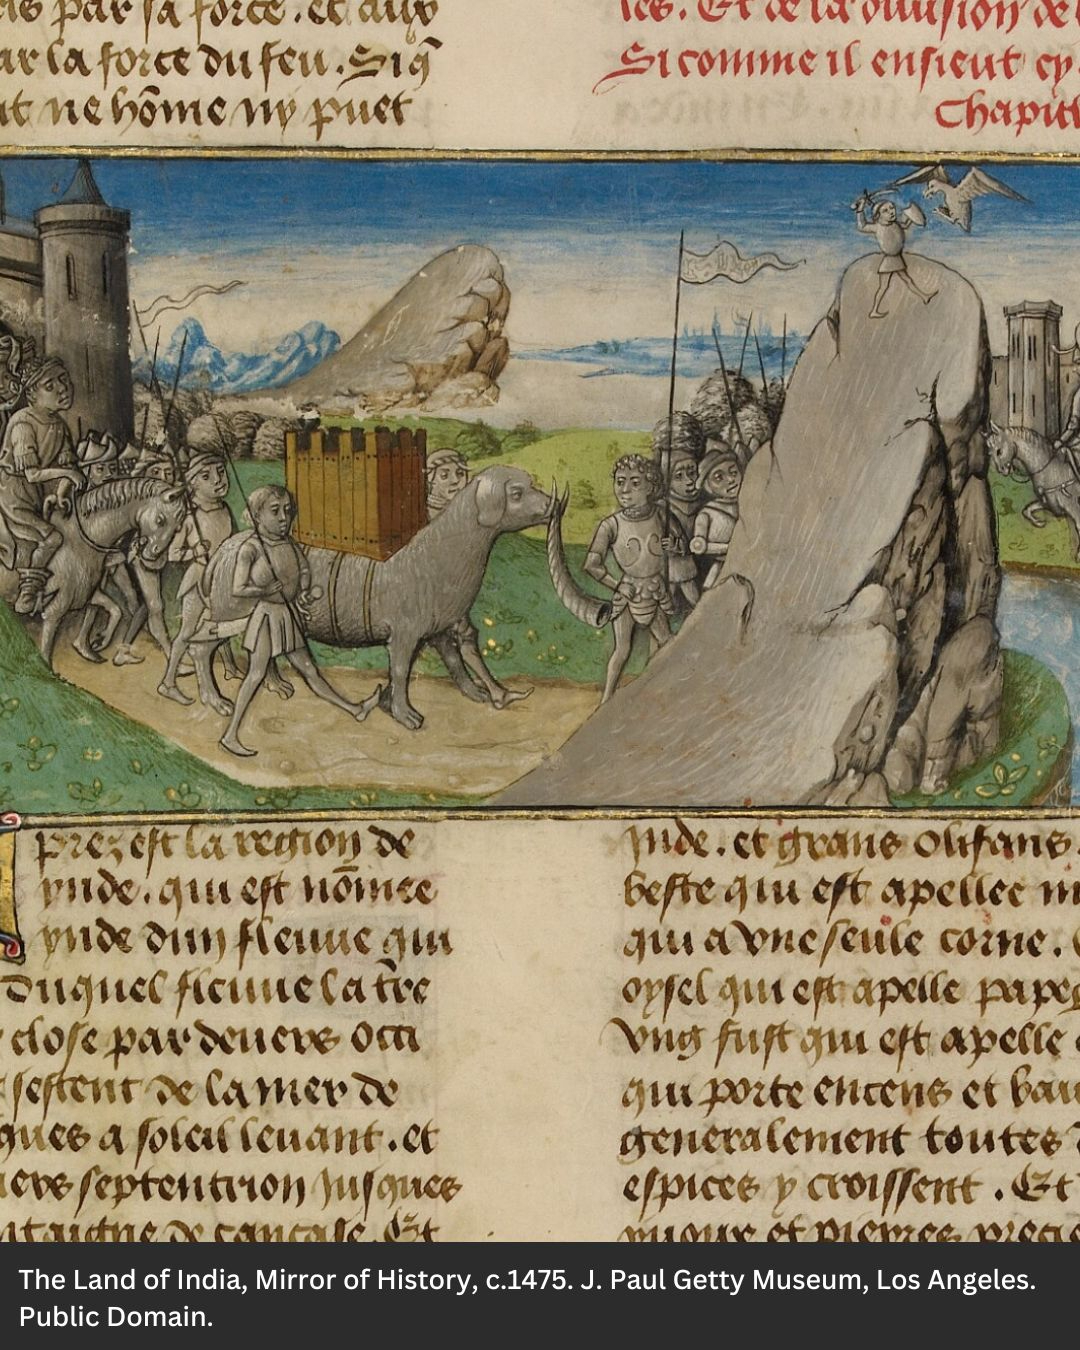 par sa force. et aux
par la force du feu. Siq̄
ne hōme ny puet
les. Et de la diuision de
Si comme il ensieut cy
Chapit
prez est la region de
ynde. qui est nōmee
ynde dun fleuue qui
Duquel fleuue la tr̄e
close par deuers Occi
sestent de la mer de
ques a soleil leuant. et
septentrion jusques
de caucase. Et
ynde. et grans Olifans.
beste qui est apellee
qui a vne seule corne.
oysel qui est apelle pape
vng fust qui est apelle
qui porte encens et bau
generalement toutes
espices y croissent. Et
et pierres preci
The Land of India, Mirror of History, c.1475. J. Paul Getty Museum, Los Angeles.
Public Domain.